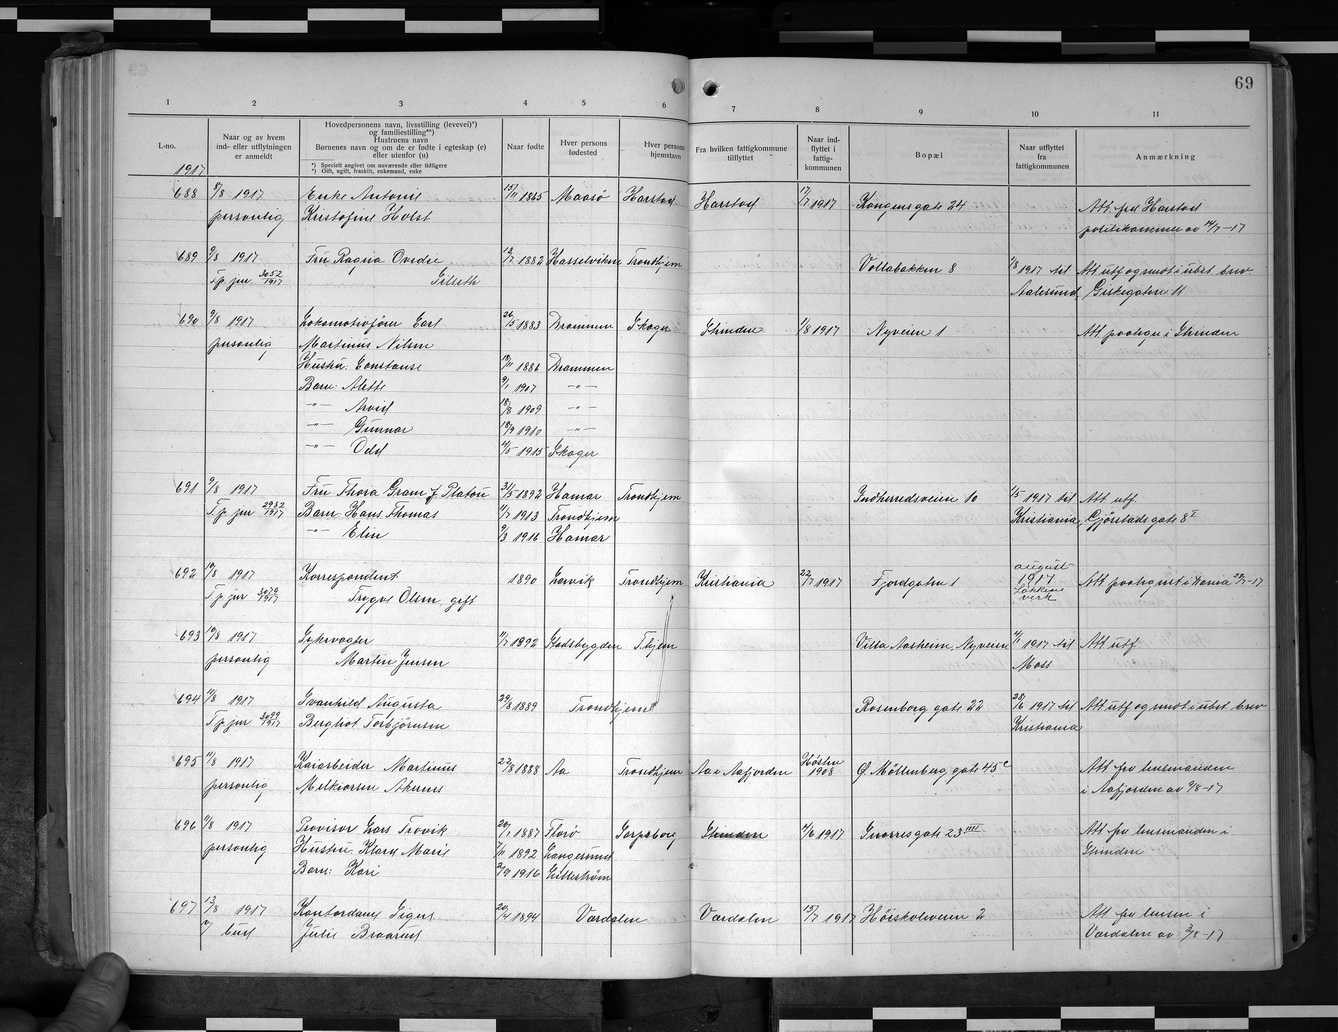 69
1 2 3 4 5 6 7 8 9 10 11
L-no.
Naar og av hvem
ind- eller utflytningen
er anmeldt
Hovedpersonens navn, livsstilling (levevei)*)
og familiestilling**)
Hustruens navn
Børnenes navn og om de er fødte i egteskap (e)
eller utenfor (u)
*) Specielt angivet om nuværende eller tidligere
*) Gift, ugift, fraskilt, enkemand, enke
Naar fødte
Hver persons
fødested
Hver persons
hjemstavn
Fra hvilken fattigkommune
tilflyttet
Naar ind-
flyttet i
fattig-
kommunen
Bopæl
Naar utflyttet
fra
fattigkommunen
Anmærkning
1917
688 8/8 1917 Enke Antonie 15/11 1865 Maasø Harstad Harstad 17/7 1917 Kongensgate 24 Att. fra Harstad
personlig Kristofine Holst politikammer av 14/7-17
689 9/8 1917 Fru Ragna Ovedie 13/2 1882 Hasselvikene Trondhjem Vollabakken 8 1/8 1917 til Att utf og smot i ubet. brev.
T.p. jnr 3052/1917 Gilseth Aalesund, Giskegaten 11
690 9/8 1917 Lokomotivfører Carl 26/5 1883 Drammen Skoger Strinden 1/8 1917 Nyveien 1 Att paategn i Strinden
personlig Martinus Nilsen
Hustru: Constanse 12/11 1886 Drammen
Barn: Alette 9/1 1907 -"-
-"- Arvid 18/8 1909 -"-
-"- Gunnar 18/9 1910 -"-
-"- Odd 4/5 1915 Skoger
691 9/8 1917 Fru Thora Gram f. Platou 31/5 1892 Hamar Trondhjem Indherredsveien 10 1/5 1917 til Att utf.
T.p. jnr 2982/1917 Barn: Hans Thomas 11/7 1913 Trondhjem Kristiania, Gjørstads gate 8 I
-"- Elin 9/3 1916 Hamar
692 10/8 1917 Korrespondent 1890 Larvik Trondhjem Kristiania 22/7 1917 Fjordgaten 1 august 1917 Løkkens verk Att paategnet i Krania 29/7-17
T.p. jnr 3076/1917 Trygve Olsen, gift
693 10/8 1917 Sykevogter 11/7 1892 Stadsbygden T.hjem Villa Aasheim, Nyveien 4/1 1917 til Att utf.
personlig Martin Jensen Moss
694 11/8 1917 Svanhild Augusta 29/8 1889 Trondhjem Rosenborg gate 22 28/6 1917 til Att utf og smot i ubet brev
T.p. jnr 3099/1917 Berghot Torbjørnsen Kristiania
695 11/8 1917 Kaiarbeider Martinus 22/8 1888 Aa Trondhjem Aa i Aafjorden Høsten 1908 Ø. Møllenberg gate 45 c Att fra lensmanden
personlig Melkiorsen Akernes i Aafjorden av 9/8-17
696 11/8 1917 Provisor Lars Trovik 20/1 1887 Florø Sarpsborg Strinden 4/6 1917 Snorresgate 23 IIII Att fra lensmanden i
personlig Hustru: Klara Marie 7/11 1892 Langesund Strinden
Barn: Kari 2/9 1916 Lillestrøm
697 13/8 1917 Kontordame Signe 20/4 1894 Værdalen Værdalen 15/7 1917 Høiskoleveien 2 Att fra lensm i
v/ bud Julie Braarud Værdalen av 9/8-17